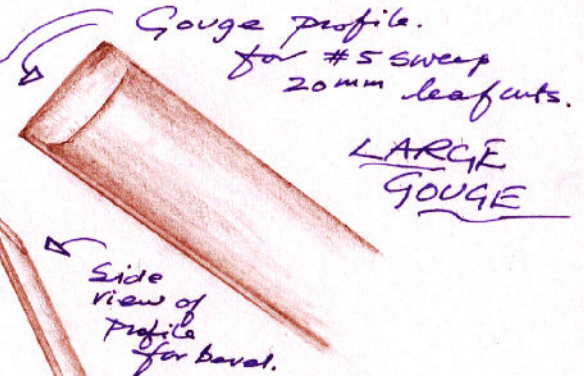 Gouge profile.
for #5 sweep
20mm leafcuts.
LARGE
GOUGE
Side
view of
profile
for bevel.